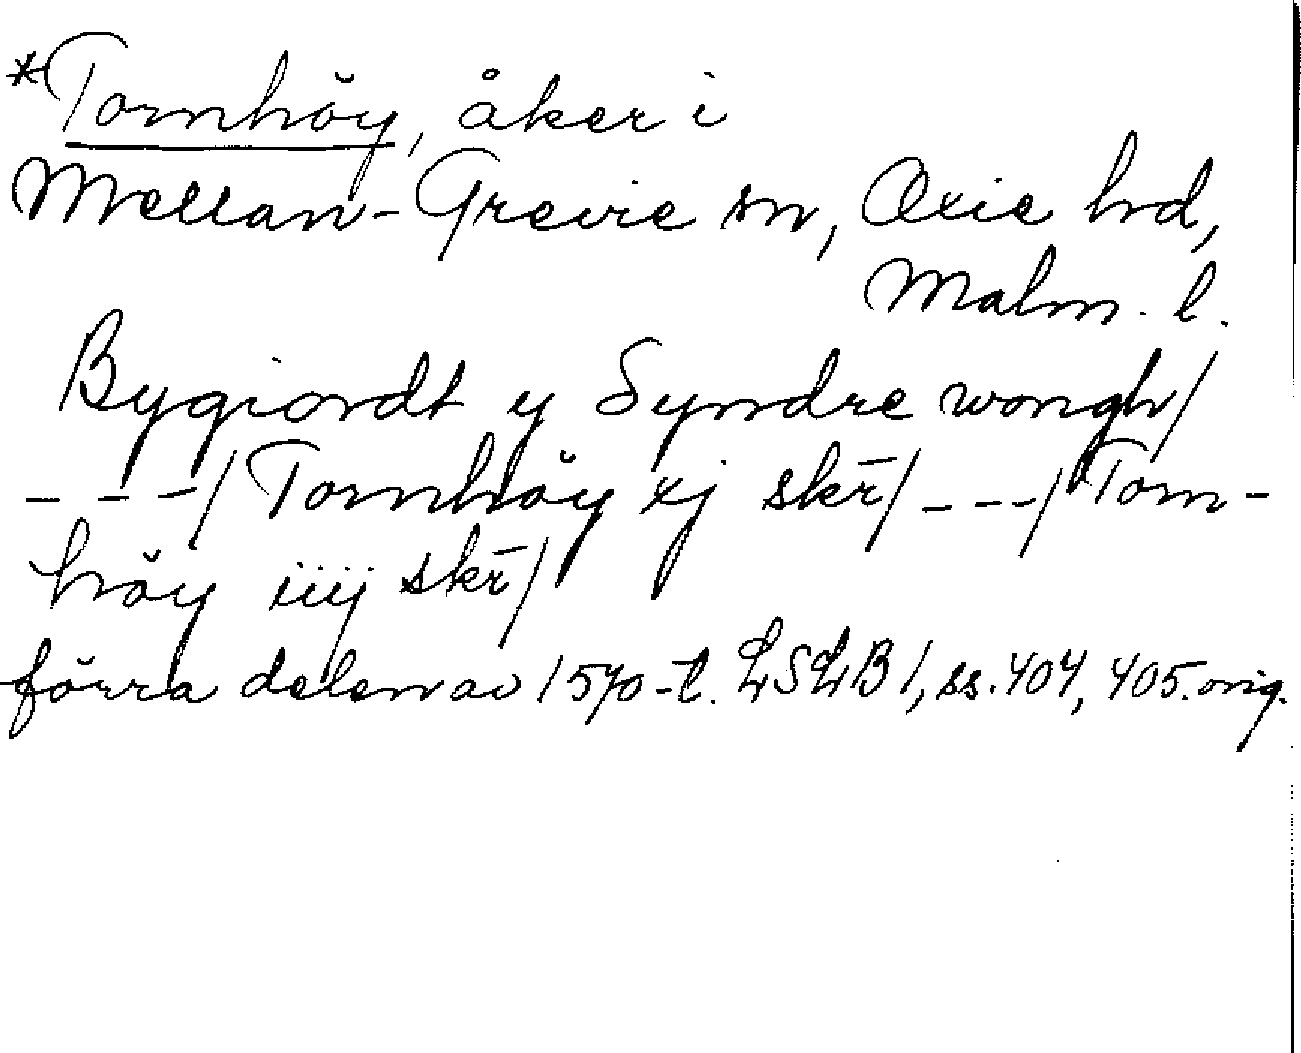 *Tornhöy, åker i
Mellan-Grevie sn, Oxie hd,
Malm. l.
Bygiordt y Syndre wongh/
- - -/ Tornhöy xj skr̄/ _ - -/ Torn-
höy iiij skr̄/
förra delen av 1570-t. LSLB 1, ss. 404, 405. orig.